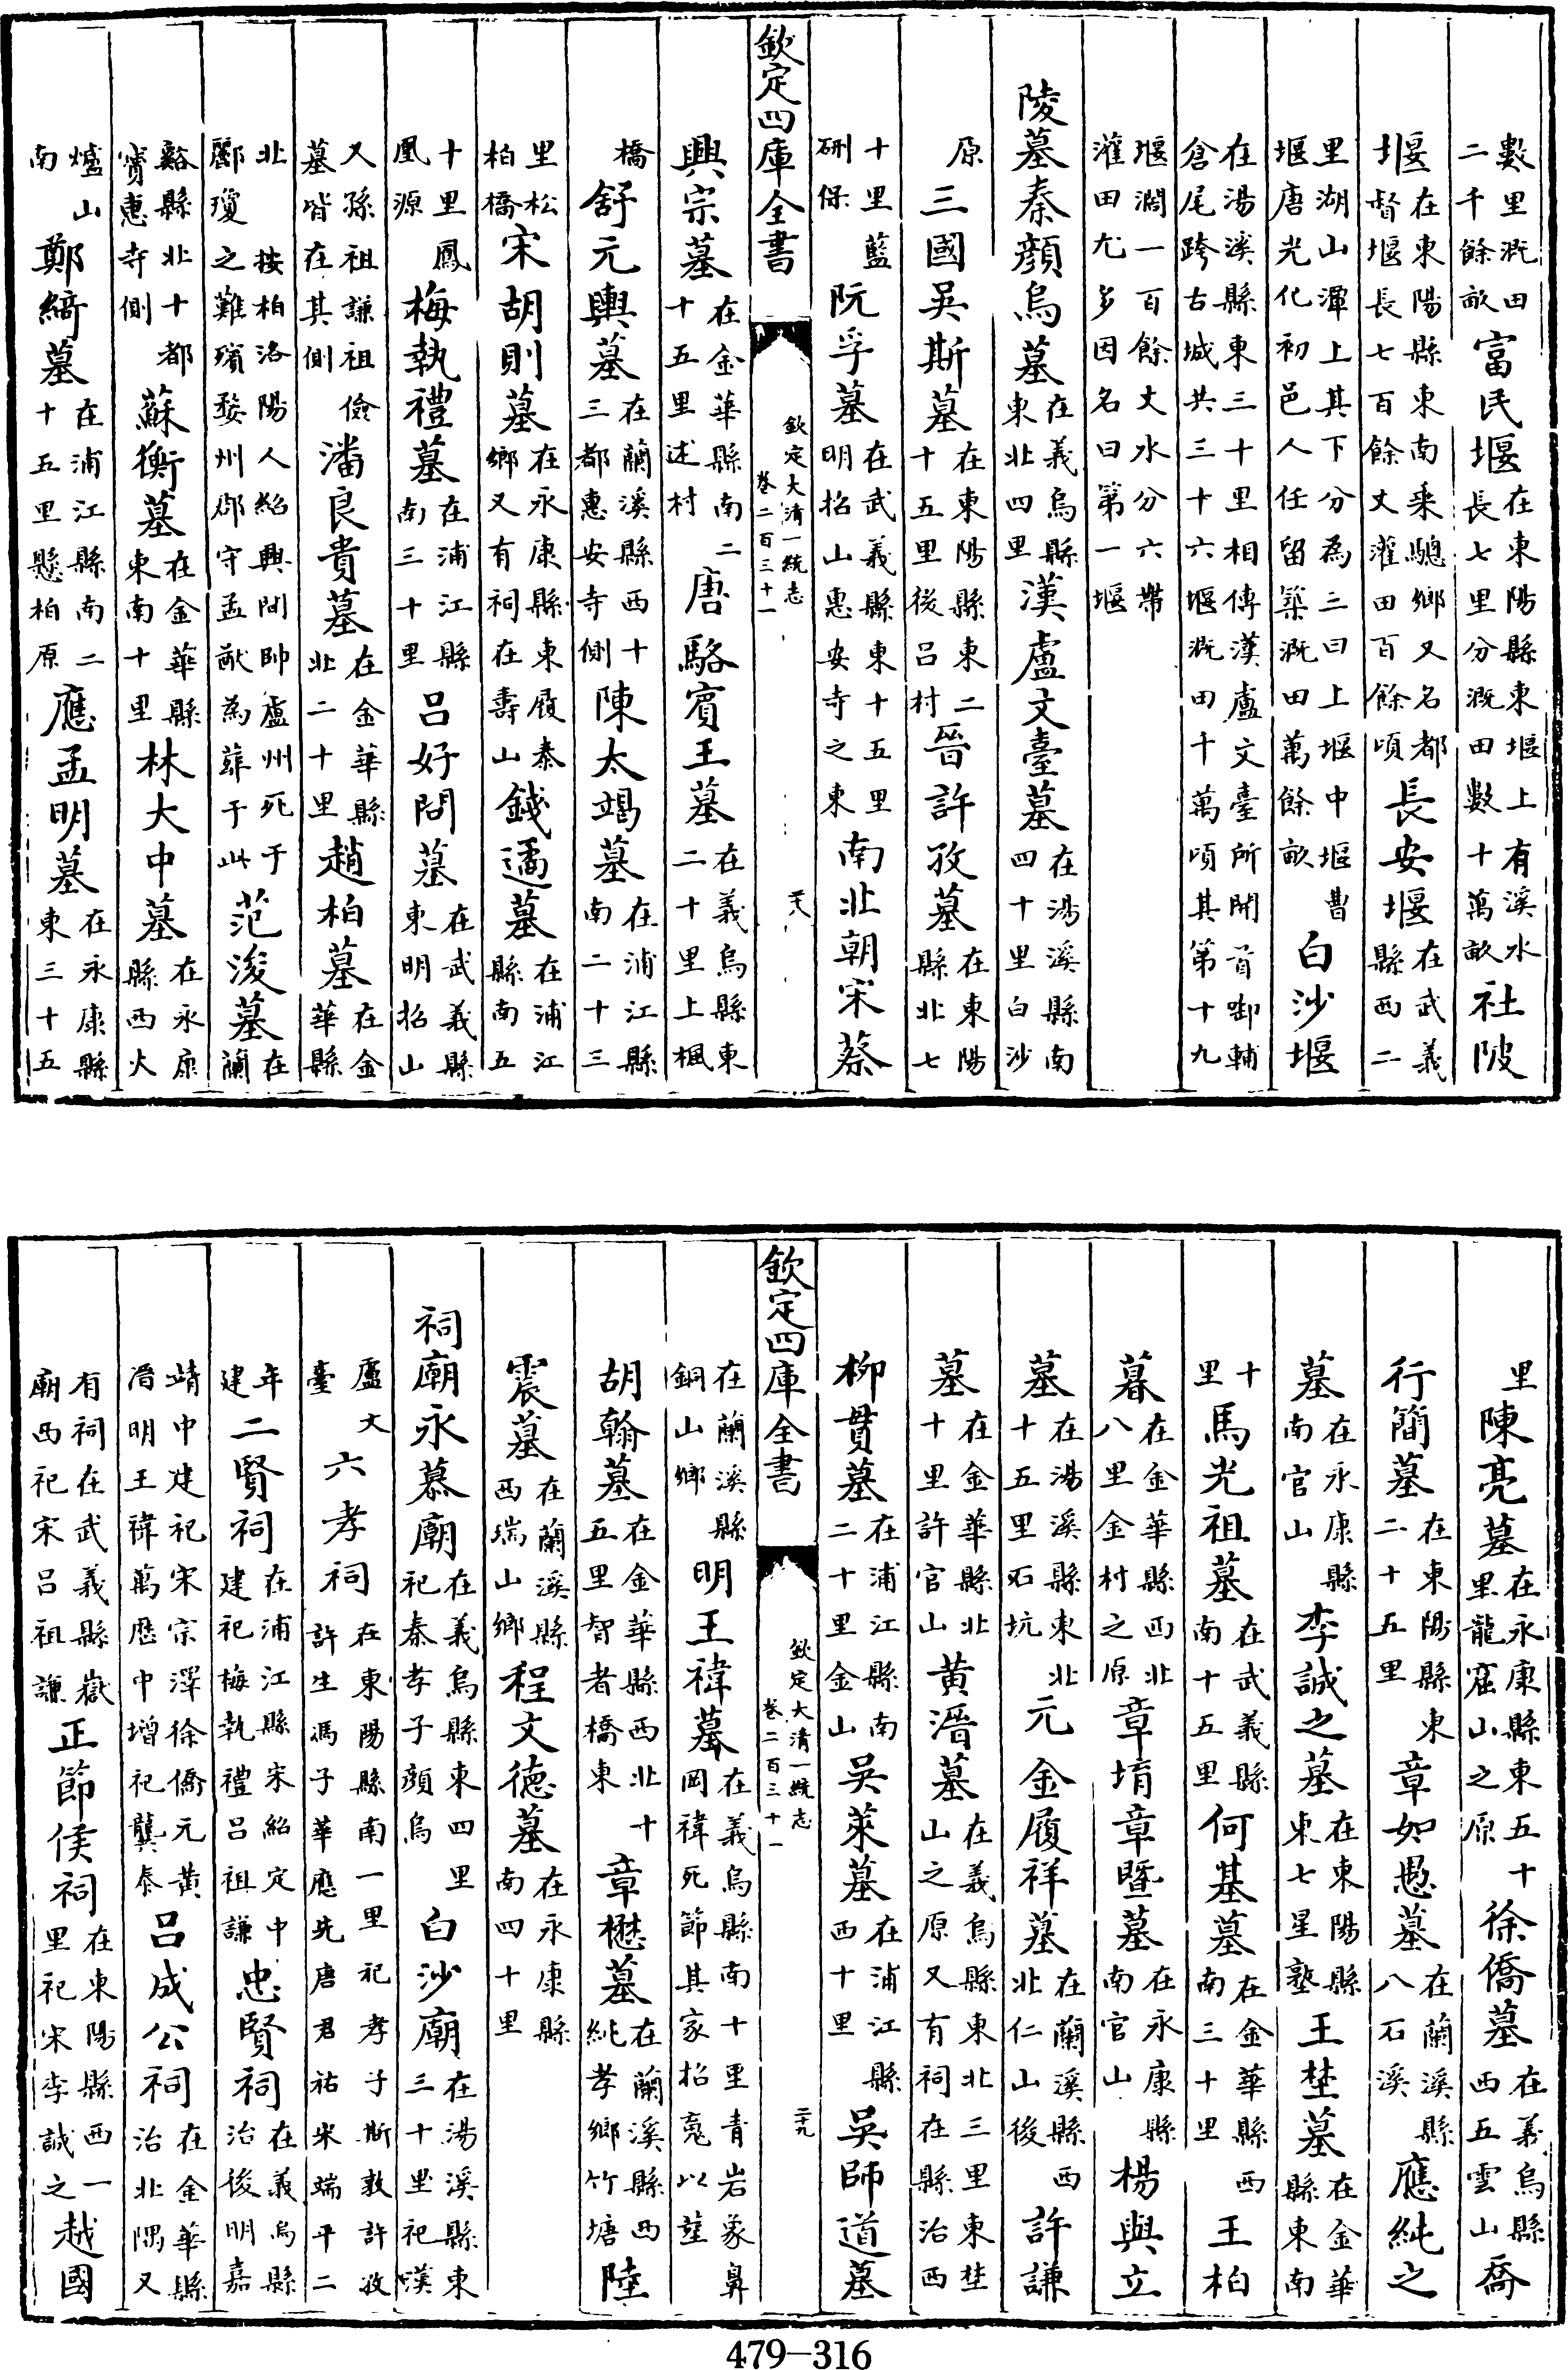 數里溉田二千餘畝富民堰在東陽縣東堰上有溪水長七里分溉田數十萬畝社陂
堰在東陽縣東南乘驄鄉又名都督堰長七百餘丈灌田百餘頃長安堰在武義縣西二
里湖山潭上其下分為三曰上堰中堰曹堰唐光化初邑人任留築溉田萬餘畝白沙堰
在湯溪縣東三十里相傳漢盧文臺所開首卸輔倉尾跨古城共三十六堰溉田十萬頃其第十九
堰濶一百餘丈水分六帶灌田尤多因名曰第一堰
陵墓秦顔烏墓在義烏縣東北四里漢盧文臺墓在湯溪縣南四十里白沙
原三國吳斯墓在東陽縣東二十五里後呂村晉許孜墓在東陽縣北七
十里藍硎保阮孚墓在武義縣東十五里明招山惠安寺之東南北朝宋蔡
欽定四庫全書 欽定大清一統志卷二百三十一 二十八
興宗墓在金華縣南二十五里述村唐駱賓王墓在義烏縣東二十里上楓
橋舒元輿墓在蘭溪縣西十三都惠安寺側陳太竭墓在浦江縣南二十三
里松柏橋宋胡則墓在永康縣東履泰鄉又有祠在壽山錢遹墓在浦江縣南五
十里鳳凰源梅執禮墓在浦江縣南三十里呂好問墓在武義縣東明招山
又孫祖謙祖儉墓皆在其側潘良貴墓在金華縣北二十里趙柏墓在金華縣
北按柏洛陽人紹興間帥盧州死于酈瓊之難殯婺州郡守孟猷為葬于此范浚墓在蘭
谿縣北十都寳惠寺側蘇衡墓在金華縣東南十里林大中墓在永康縣西火
爐山南鄭綺墓在浦江縣南二十五里懸柏原應孟明墓在永康縣東三十五
里陳亮墓在永康縣東五十里龍窟山之原徐僑墓在義烏縣西五雲山喬
行簡墓在東陽縣東二十五里章如愚墓在蘭溪縣八石溪應純之
墓在永康縣南官山李誠之墓在東陽縣東七星塾王埜墓在金華縣東南
十里馬光祖墓在武義縣南十五里何基墓在金華縣西南三十里王柏
墓在金華縣西北八里金村之原章堉章曁墓在永康縣南官山楊與立
墓在湯溪縣東北十五里石坑元金履祥墓在蘭溪縣西北仁山後許謙
墓在金華縣北十里許官山黄溍墓在義烏縣東北三里東埜山之原又有祠在縣治西
柳貫墓在浦江縣南二十里金山吳萊墓在浦江縣西十里吳師道墓
欽定四庫全書 欽定大清一統志卷二百三十一 二十九
在蘭溪縣銅山鄉明王禕墓在義烏縣南十里青岩象鼻岡禕死節其家招䰟以塟
胡翰墓在金華縣西北十五里智者橋東章懋墓在蘭溪縣西純孝鄉竹塘陸
震墓在蘭溪縣西瑞山鄉程文德墓在永康縣南四十里
祠廟永慕廟在義烏縣東四里祀秦孝子顔烏白沙廟在湯溪縣東三十里祀漢
盧文臺六孝祠在東陽縣南一里祀孝子斯敦許孜許生馮子華應先唐君祐宋端平二
年建二賢祠在浦江縣宋紹定中建祀梅執禮呂祖謙忠賢祠在義烏縣治後明嘉
靖中建祀宋宗澤徐僑元黄溍明王禕萬歴中增祀龔泰呂成公祠在金華縣治北隅又
有祠在武義縣嶽廟西祀宋呂祖謙正節侯祠在東陽縣西一里祀宋李誠之越國
479–316